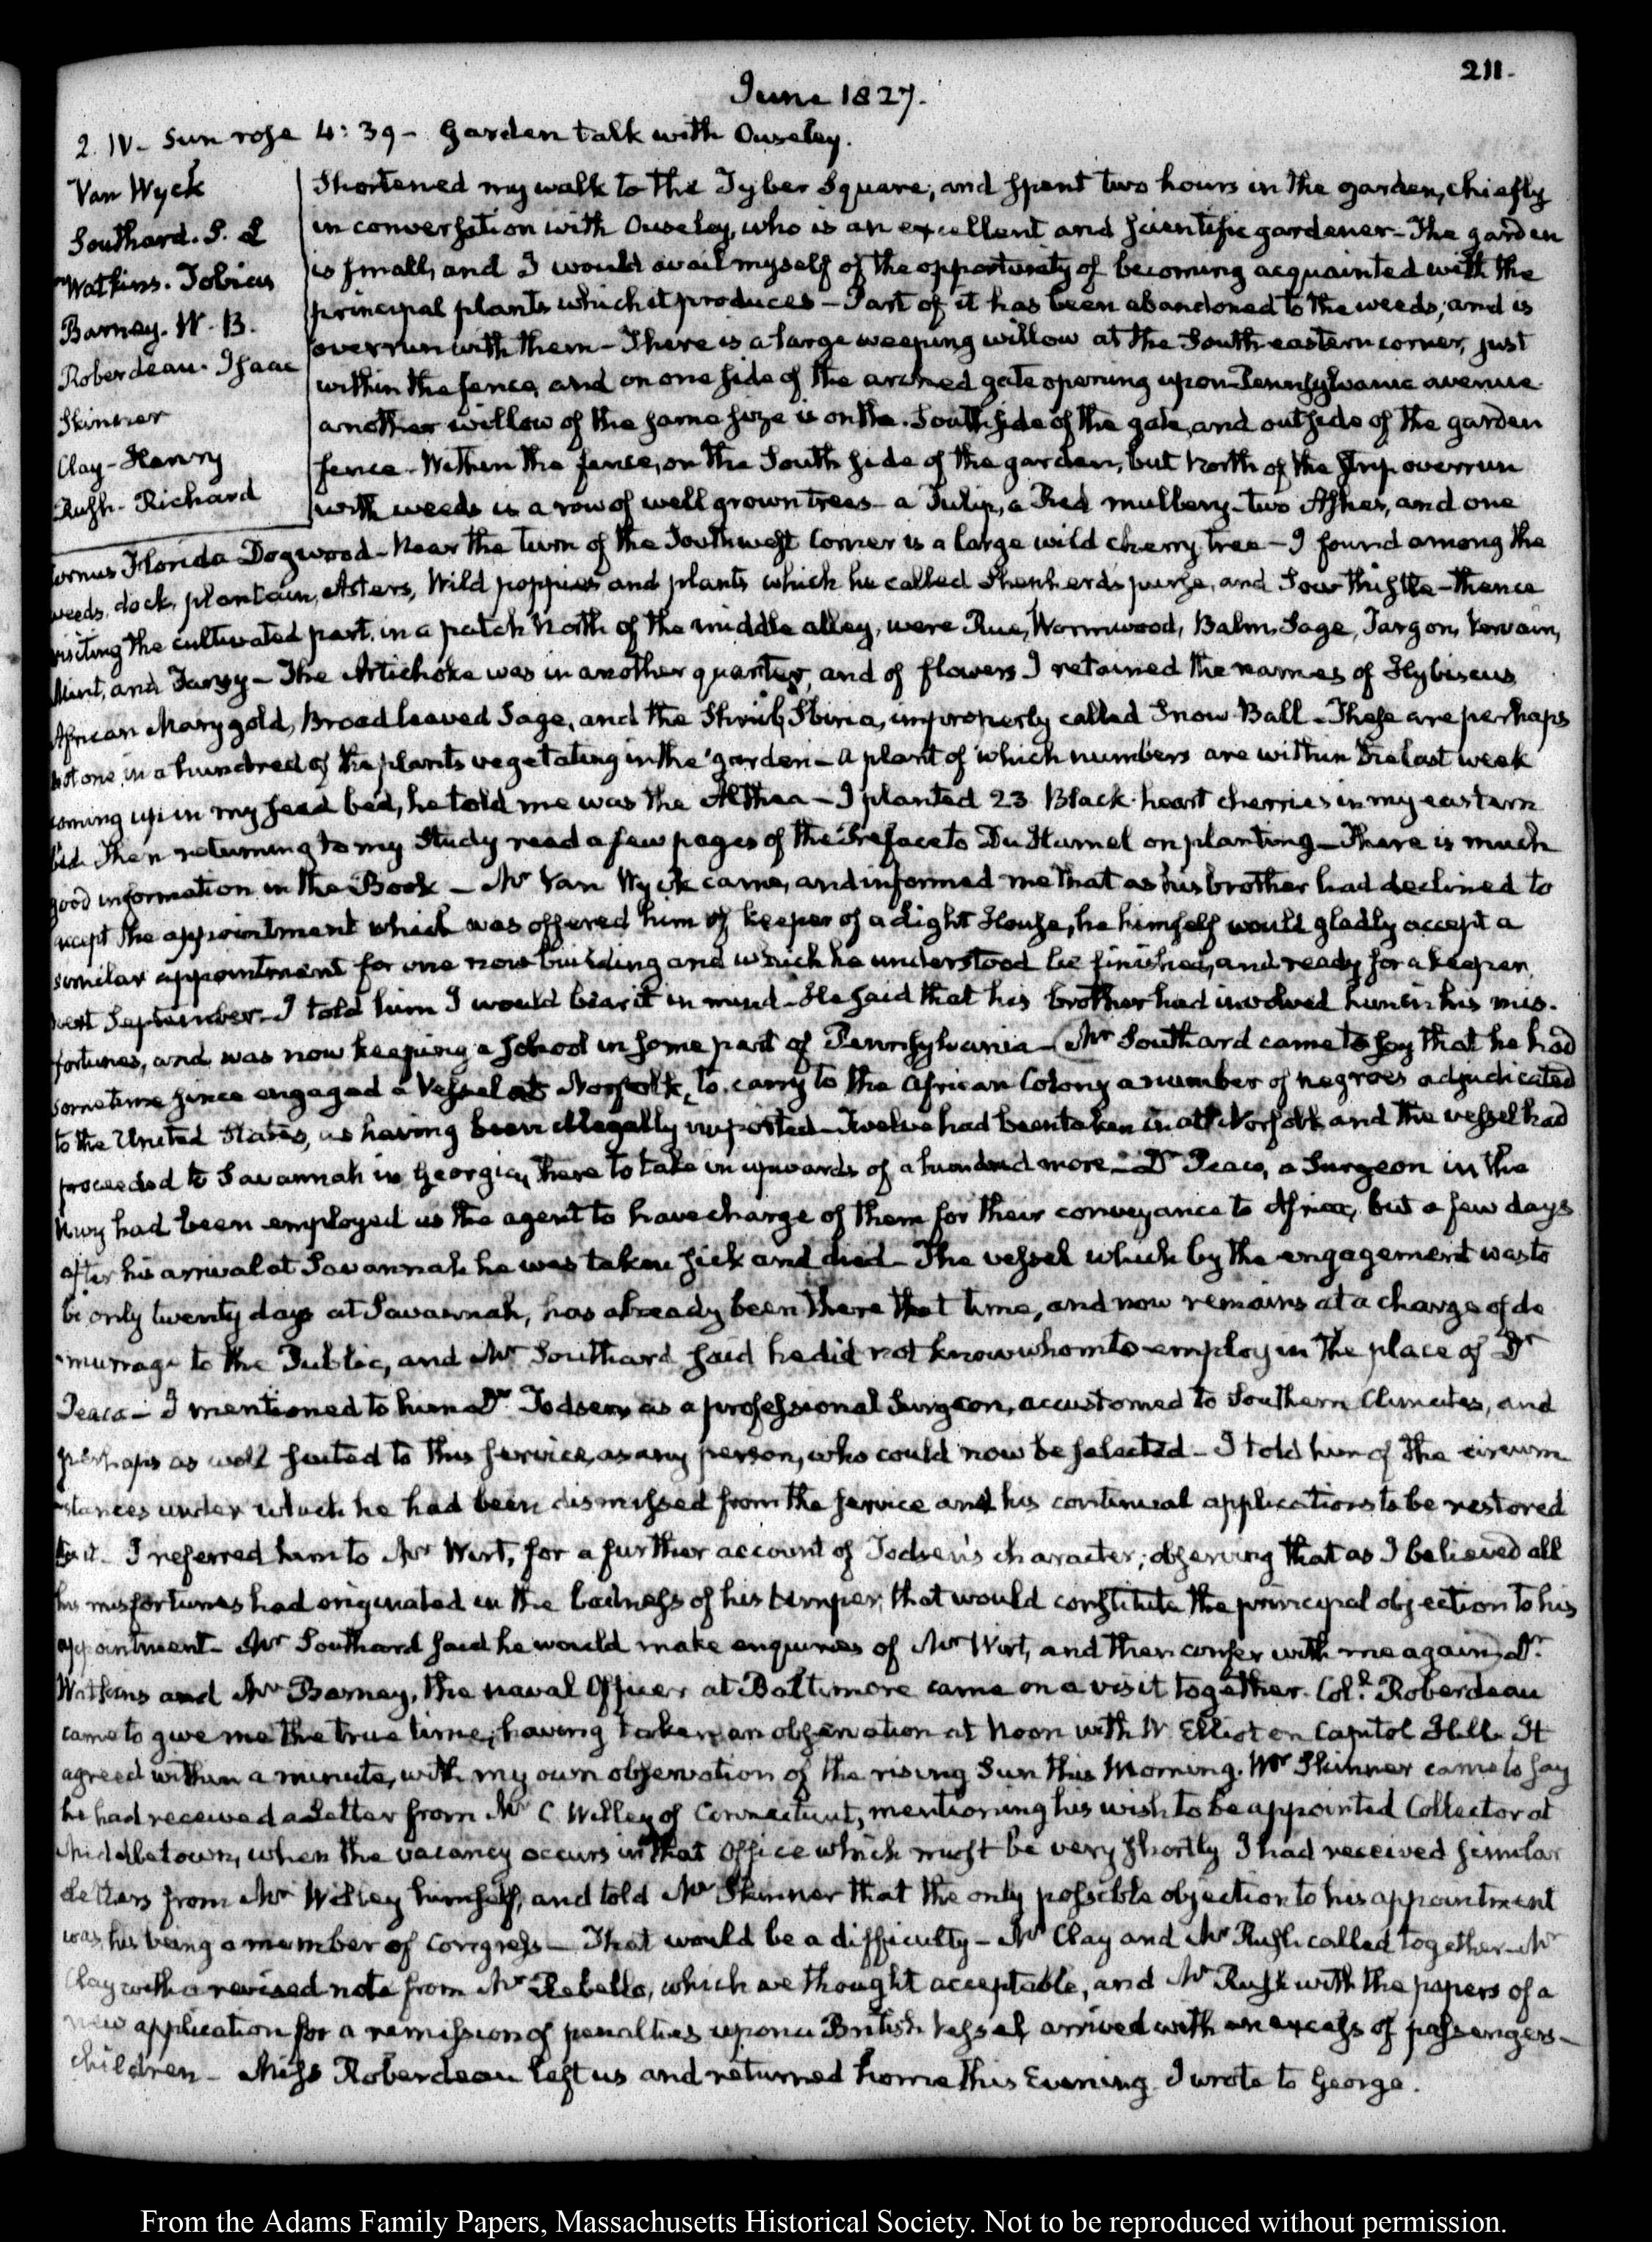 211.
June 1827.
2. IV. Sun rose 4:39 - Garden talk with Ouseley.
Van Wyck
Southard. S. L
Watkins. Tobias
Barney. W. B.
Roberdeau. Isaac
Skinner
Clay - Henry
Rush - Richard
Shortened my walk to the Tyber Square, and spent two hours in the garden, chiefly
in conversation with Ouseley, who is an excellent and scientific gardener - The garden
is small, and I would avail myself of the opportunity of becoming acquainted with the
principal plants which it produces - Part of it has been abandoned to the weeds, and is
overrun with them - There is a large weeping willow at the South eastern corner, just
within the fence, and on one side of the arched gate opening upon Pennsylvania avenue
another willow of the same size is on the South side of the gate, and outside of the garden
fence - Within the fence, on the South side of the garden, but North of the strip overrun
with weeds is a row of well grown trees - a Tulip, a Red mulbery - two Ashes, and one
Cornus Florida Dogwood - Near the turn of the Southwest corner is a large wild cherry tree - I found among the
weeds, dock, plantain, Asters, Wild poppies and plants which he called Shepherd's purse, and Sow thistle - thence
visiting the cultivated part, in a patch North of the middle alley, were Rue, Wormwood, Balm, Sage, Targon, Vervain,
Mint, and Tansy - The Artichoke was in another quarter, and of flowers I retained the names of Hybiscus
African Marygold, Broad leaved Sage, and the Shrub, improperly called Snow Ball - These are perhaps
not one in a hundred of the plants vegetating in the garden - a plant of which numbers are within the last week
coming up in my seed bed, he told me was the Althea - I planted 23 Black-heart cherries in my eastern
bed. Then returning to my Study read a few pages of the Preface to Du Hamel on planting - There is much
good information in the Book - Mr Van Wyck came, and informed me that as his brother had declined to
accept the appointment which was offered him of keeper of a Light House, he himself would gladly accept a
similar appointment for one now building and which he understood be finished, and ready for a keeper,
next September - I told him I would bear it in mind - He said that his brother had involved him in his mis-
fortunes, and was now keeping a School in some part of Pennsylvania - (Mr Southard came to say that he had
sometime since engaged a Vessel at Norfolk, to carry to the African Colony a number of negroes adjudicated
to the United States, as having been illegally imported - Twelve had been taken in at Norfolk and the vessel had
proceeded to Savannah in Georgia, there to take in upwards of a hundred more - Dr Peaco, a Surgeon in the
Navy had been employed as the agent to have charge of them for their conveyance to Africa, but a few days
after his arrival at Savannah he was taken sick and died - The vessel which by the engagement was to
be only twenty days at Savannah, has already been there that time, and now remains at a charge of de
-murrage to the Public, and Mr Southard said he did not know whom to employ in the place of Dr
Peaco - I mentioned to him Dr Todsen, as a professional Surgeon, accustomed to Southern Climates, and
perhaps as well suited to this service, as any person, who could now be selected - I told him of the circum
-stances under which he had been dismissed from the service and his continual applications to be restored
to it - I referred him to Mr Wirt, for a further account of Todsen's character; observing that as I believed all
his misfortunes had originated in the badness of his temper, that would constitute the principal objection to his
appointment - Mr Southard said he would make enquiries of Mr Wirt, and then confer with me again) Dr
Watkins and Mr Barney, the naval Officer at Baltimore came on a visit together. Col.l Roberdeau
came to give me the true time; having taken an observation at Noon with W. Elliot on Capitol Hill. It
agreed within a minute, with my own observation of the rising Sun this Morning. Mr Skinner came to say
he had received a Letter from Mr C. Willey of Connecticut, mentioning his wish to be appointed Collector at
Middletown, when the vacancy occurs in that Office which must be very shortly I had received similar
Letters from Mr Willey himself, and told Mr Skinner that the only possible objection to his appointment
was his being a member of Congress - That would be a difficulty - Mr Clay and Mr Rush called together - Mr
Clay with a revised note from Mr Rebello, which we thought acceptable, and Mr Rush with the papers of a
new application for a remission of penalties upon a British Vessel arrived with an excess of passengers -
children - Miss Roberdeau left us and returned home this Evening. I wrote to George.
From the Adams Family Papers, Massachusetts Historical Society. Not to be reproduced without permission.